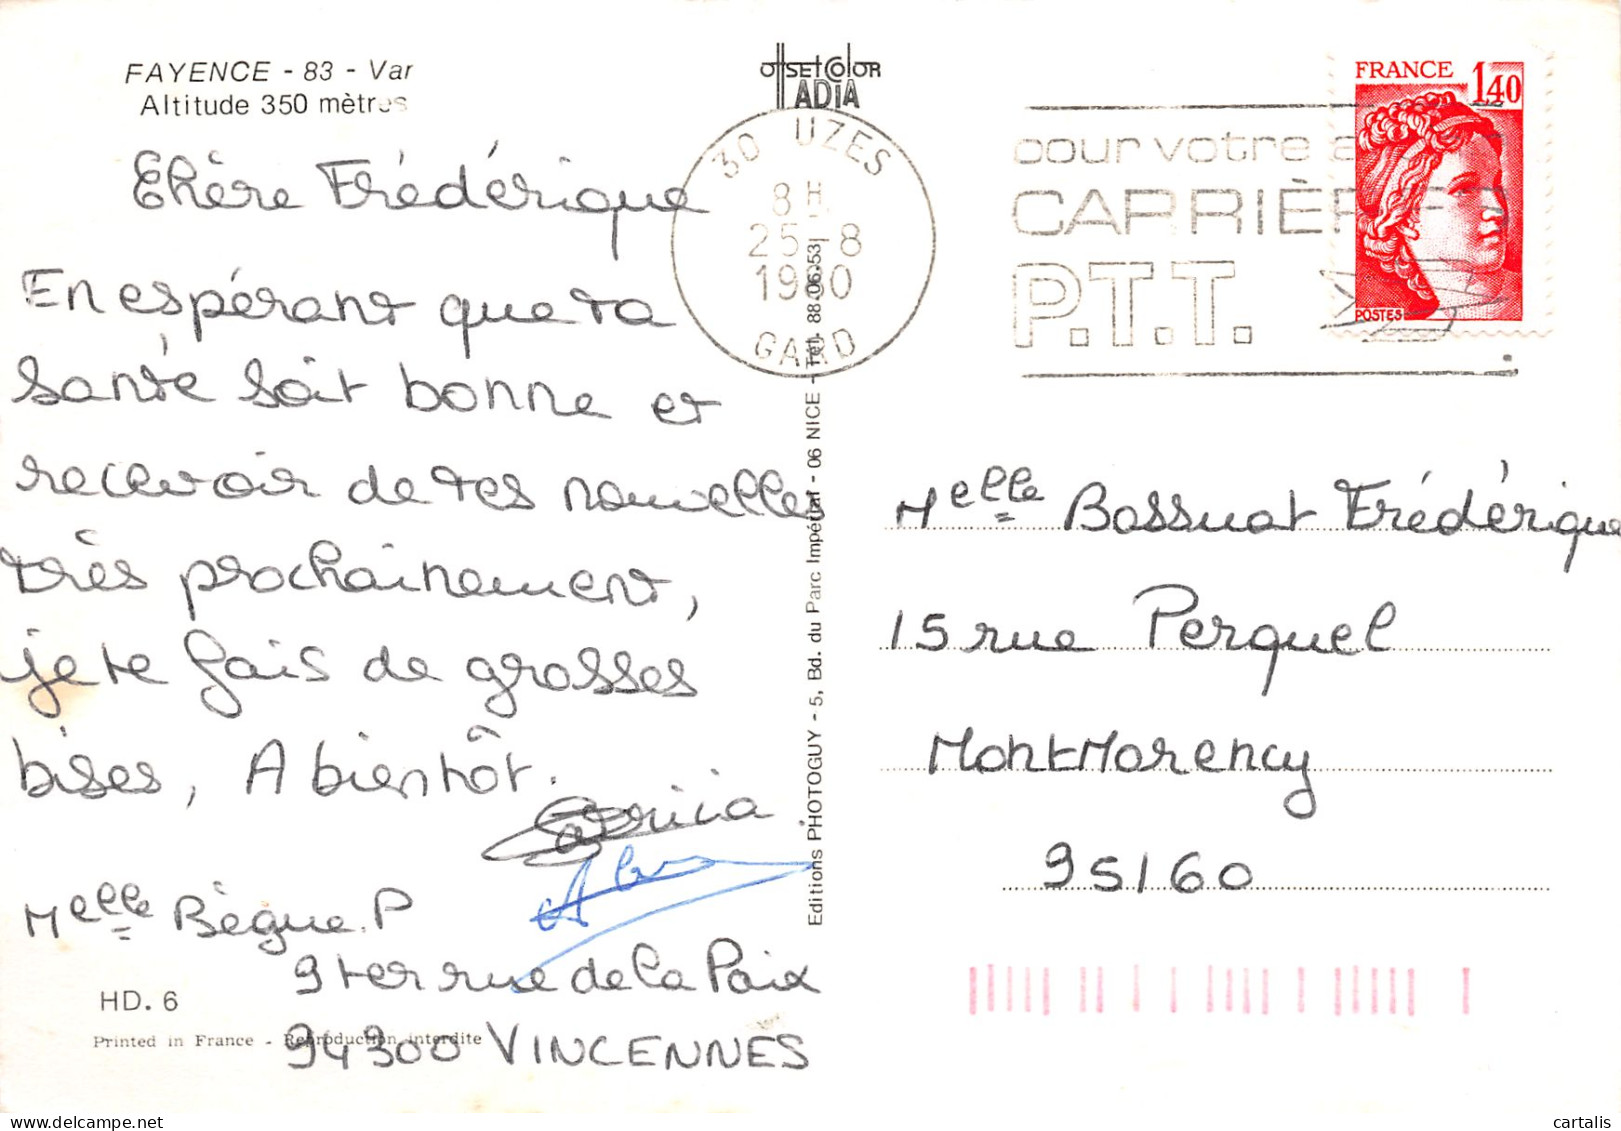 FAYENCE - 83 - Var
Altitude 350 mètres
Chère Frédérique
En espérant que ta
santé soit bonne et
recevoir de tes nouvelles
très prochainement,
je te fais de grosses
bises, A bientôt.
Melle Bègue. P
9 ter rue de la Paix
94300 VINCENNES
HD. 6
Printed in France - Reproduction interdite
OffSEt COlOR
ADIA
30 UZES
8H
25-8
1980
GARD
Editions PHOTOGUY - 5, Bd. du Parc Impérial - 06 NICE - Tél. 88.06.53
pour votre
CARRIÈRE
P.T.T.
FRANCE 1,40
POSTES
Melle Bossuat Frédérique
15 rue Perquel
Montmorency
95160
cartalis